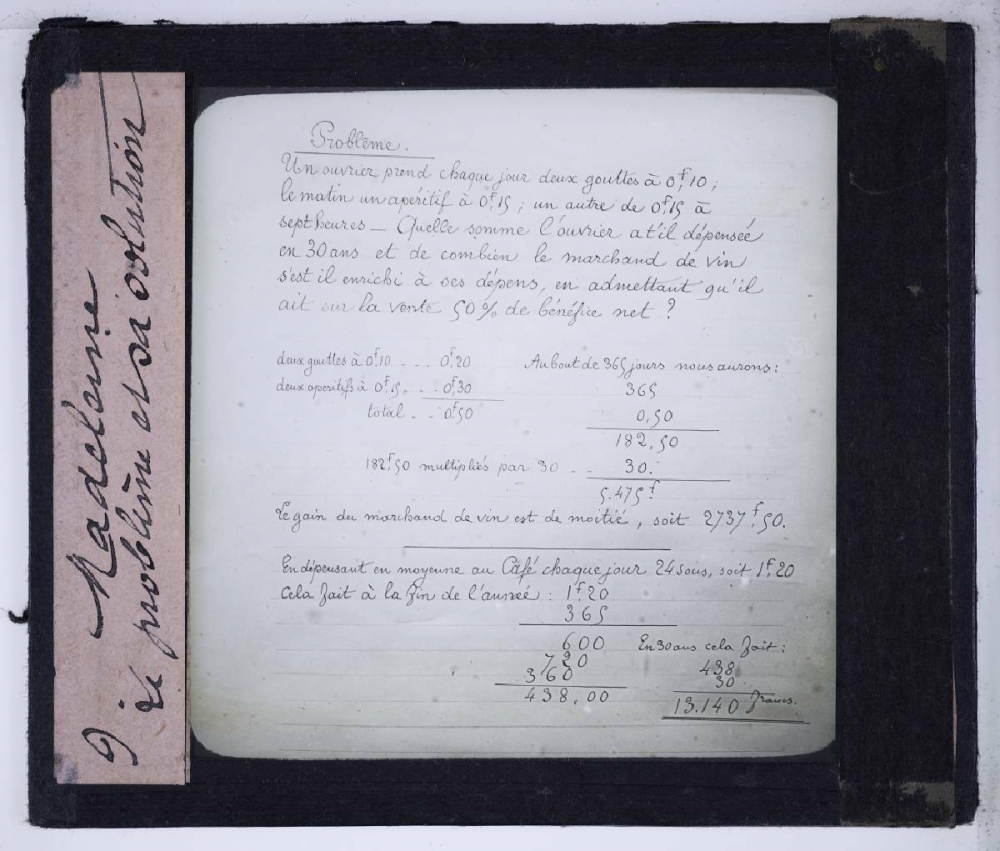 9 Madeleine
le problème et sa solution
Problème.
Un ouvrier prend chaque jour deux gouttes à 0f,10 ;
le matin un apéritif à 0f,15 ; un autre de 0f,15 à
sept heures — Quelle somme l'ouvrier at'il dépensée
en 30 ans et de combien le marchand de vin
s'est il enrichi à ses dépens, en admettant qu'il
ait sur la vente 50 % de bénéfice net ?
deux gouttes à 0f,10 . . . 0f,20
deux aperitifs à 0f,15. . . 0f,30
total . . 0f,50
Au bout de 365 jours nous aurons :
365
0,50
182,50
182f,50 multipliés par 30 . . 30.
5.475f
Le gain du marchand de vin est de moitié, soit 2737f,50.
En dépensant en moyenne au Café chaque jour 24 sous, soit 1f,20
Cela fait à la fin de l'année : 1f,20
365
600
720
360
438,00
En 30 ans cela fait :
438
30
13.140 francs.